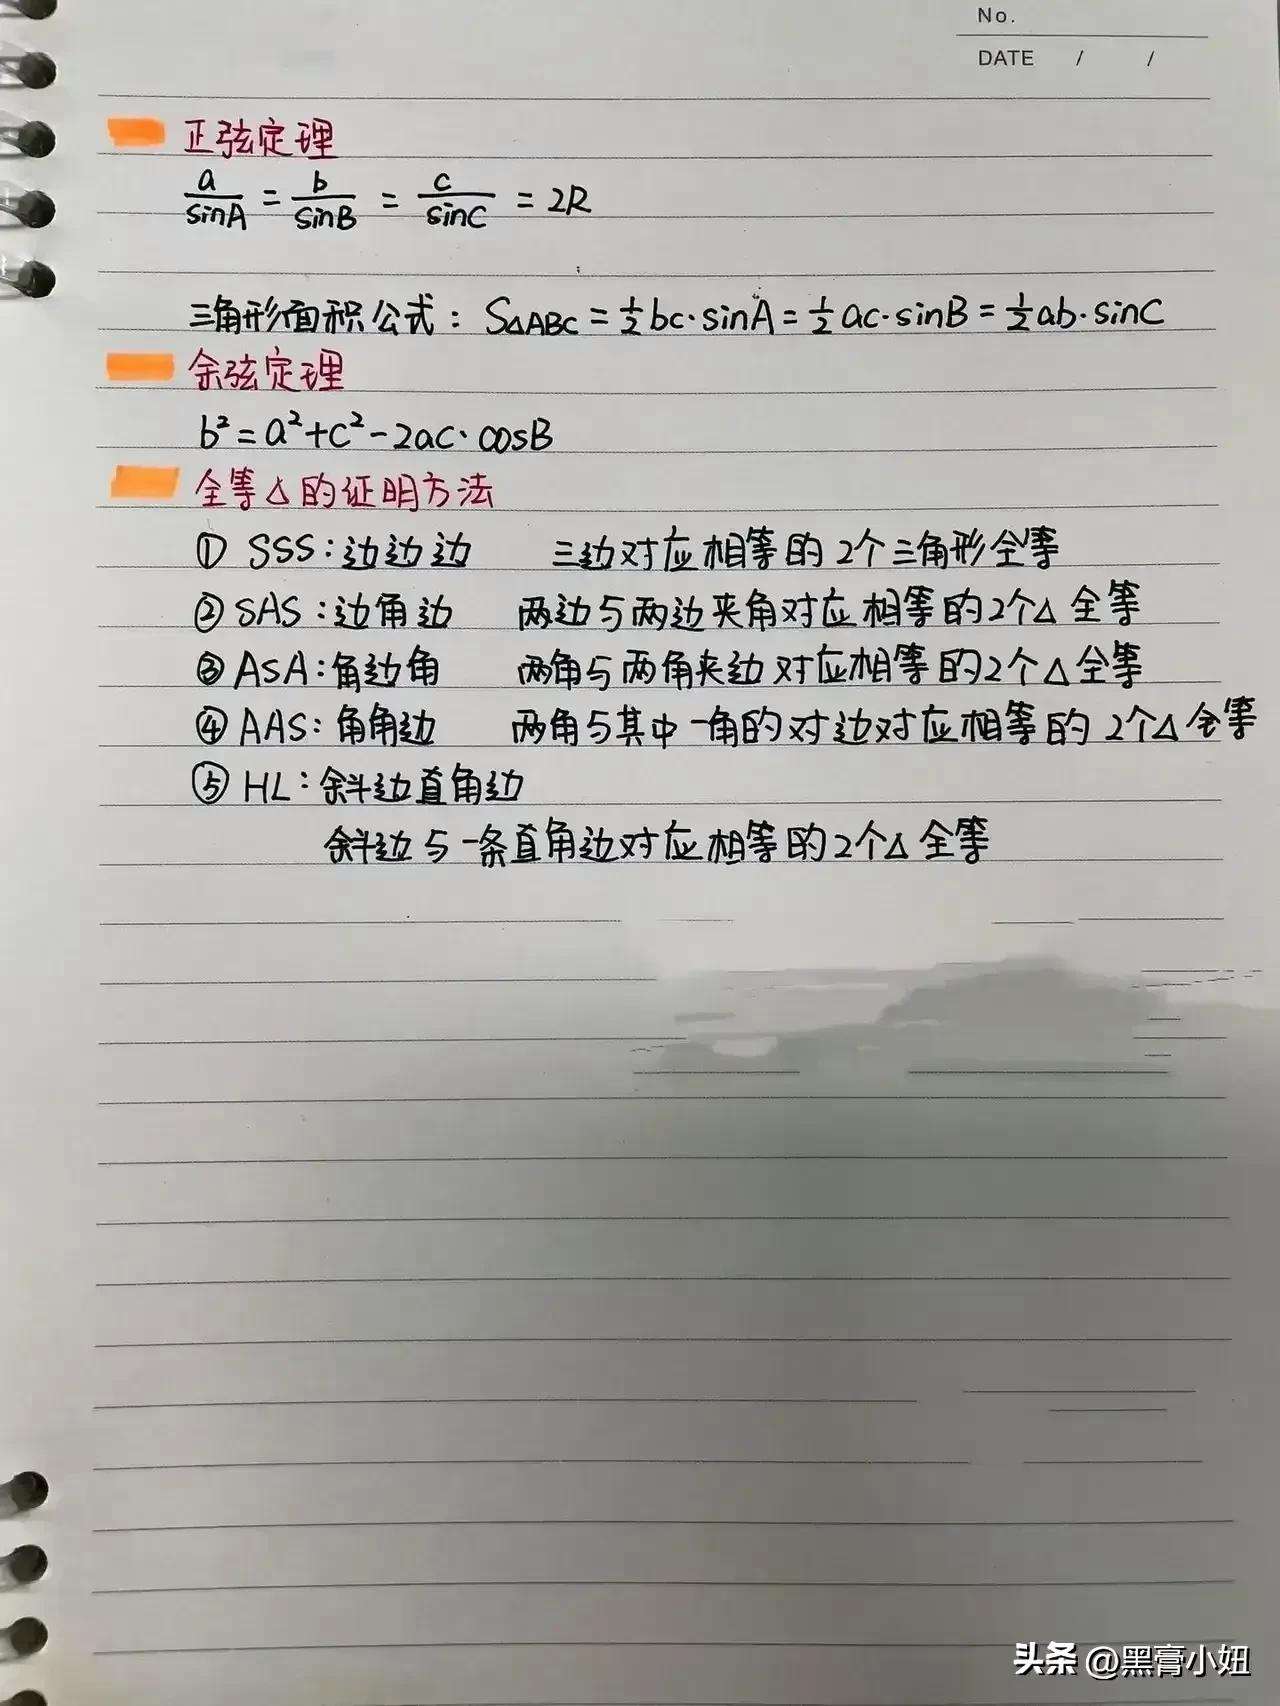 No.
DATE / /
正弦定理
a/sinA = b/sinB = c/sinC = 2R
三角形面积公式: S△ABC = ½bc·sinA = ½ac·sinB = ½ab·sinC
余弦定理
b² = a²+c²-2ac·cosB
全等△的证明方法
① SSS:边边边 三边对应相等的2个三角形全等
② SAS:边角边 两边与两边夹角对应相等的2个△全等
③ ASA:角边角 两角与两角夹边对应相等的2个△全等
④ AAS:角角边 两角与其中一角的对边对应相等的2个△全等
⑤ HL:斜边直角边
斜边与一条直角边对应相等的2个△全等
头条 @黑膏小妞